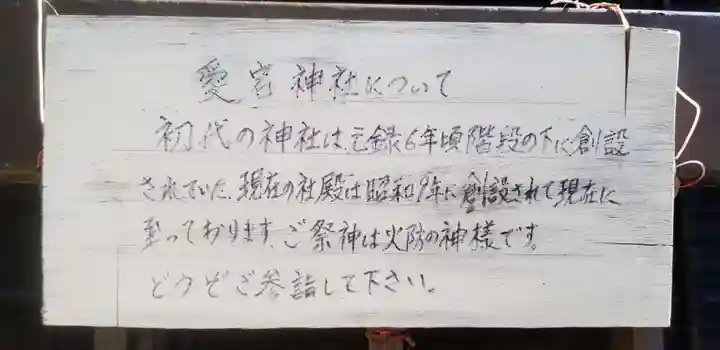 愛宕神社について
初代の神社は、元録6年頃階段の下に創設
されていた。現在の社殿は昭和9年に創設されて現在に
至っております。ご祭神は火防の神様です。
どうぞご参詣して下さい。